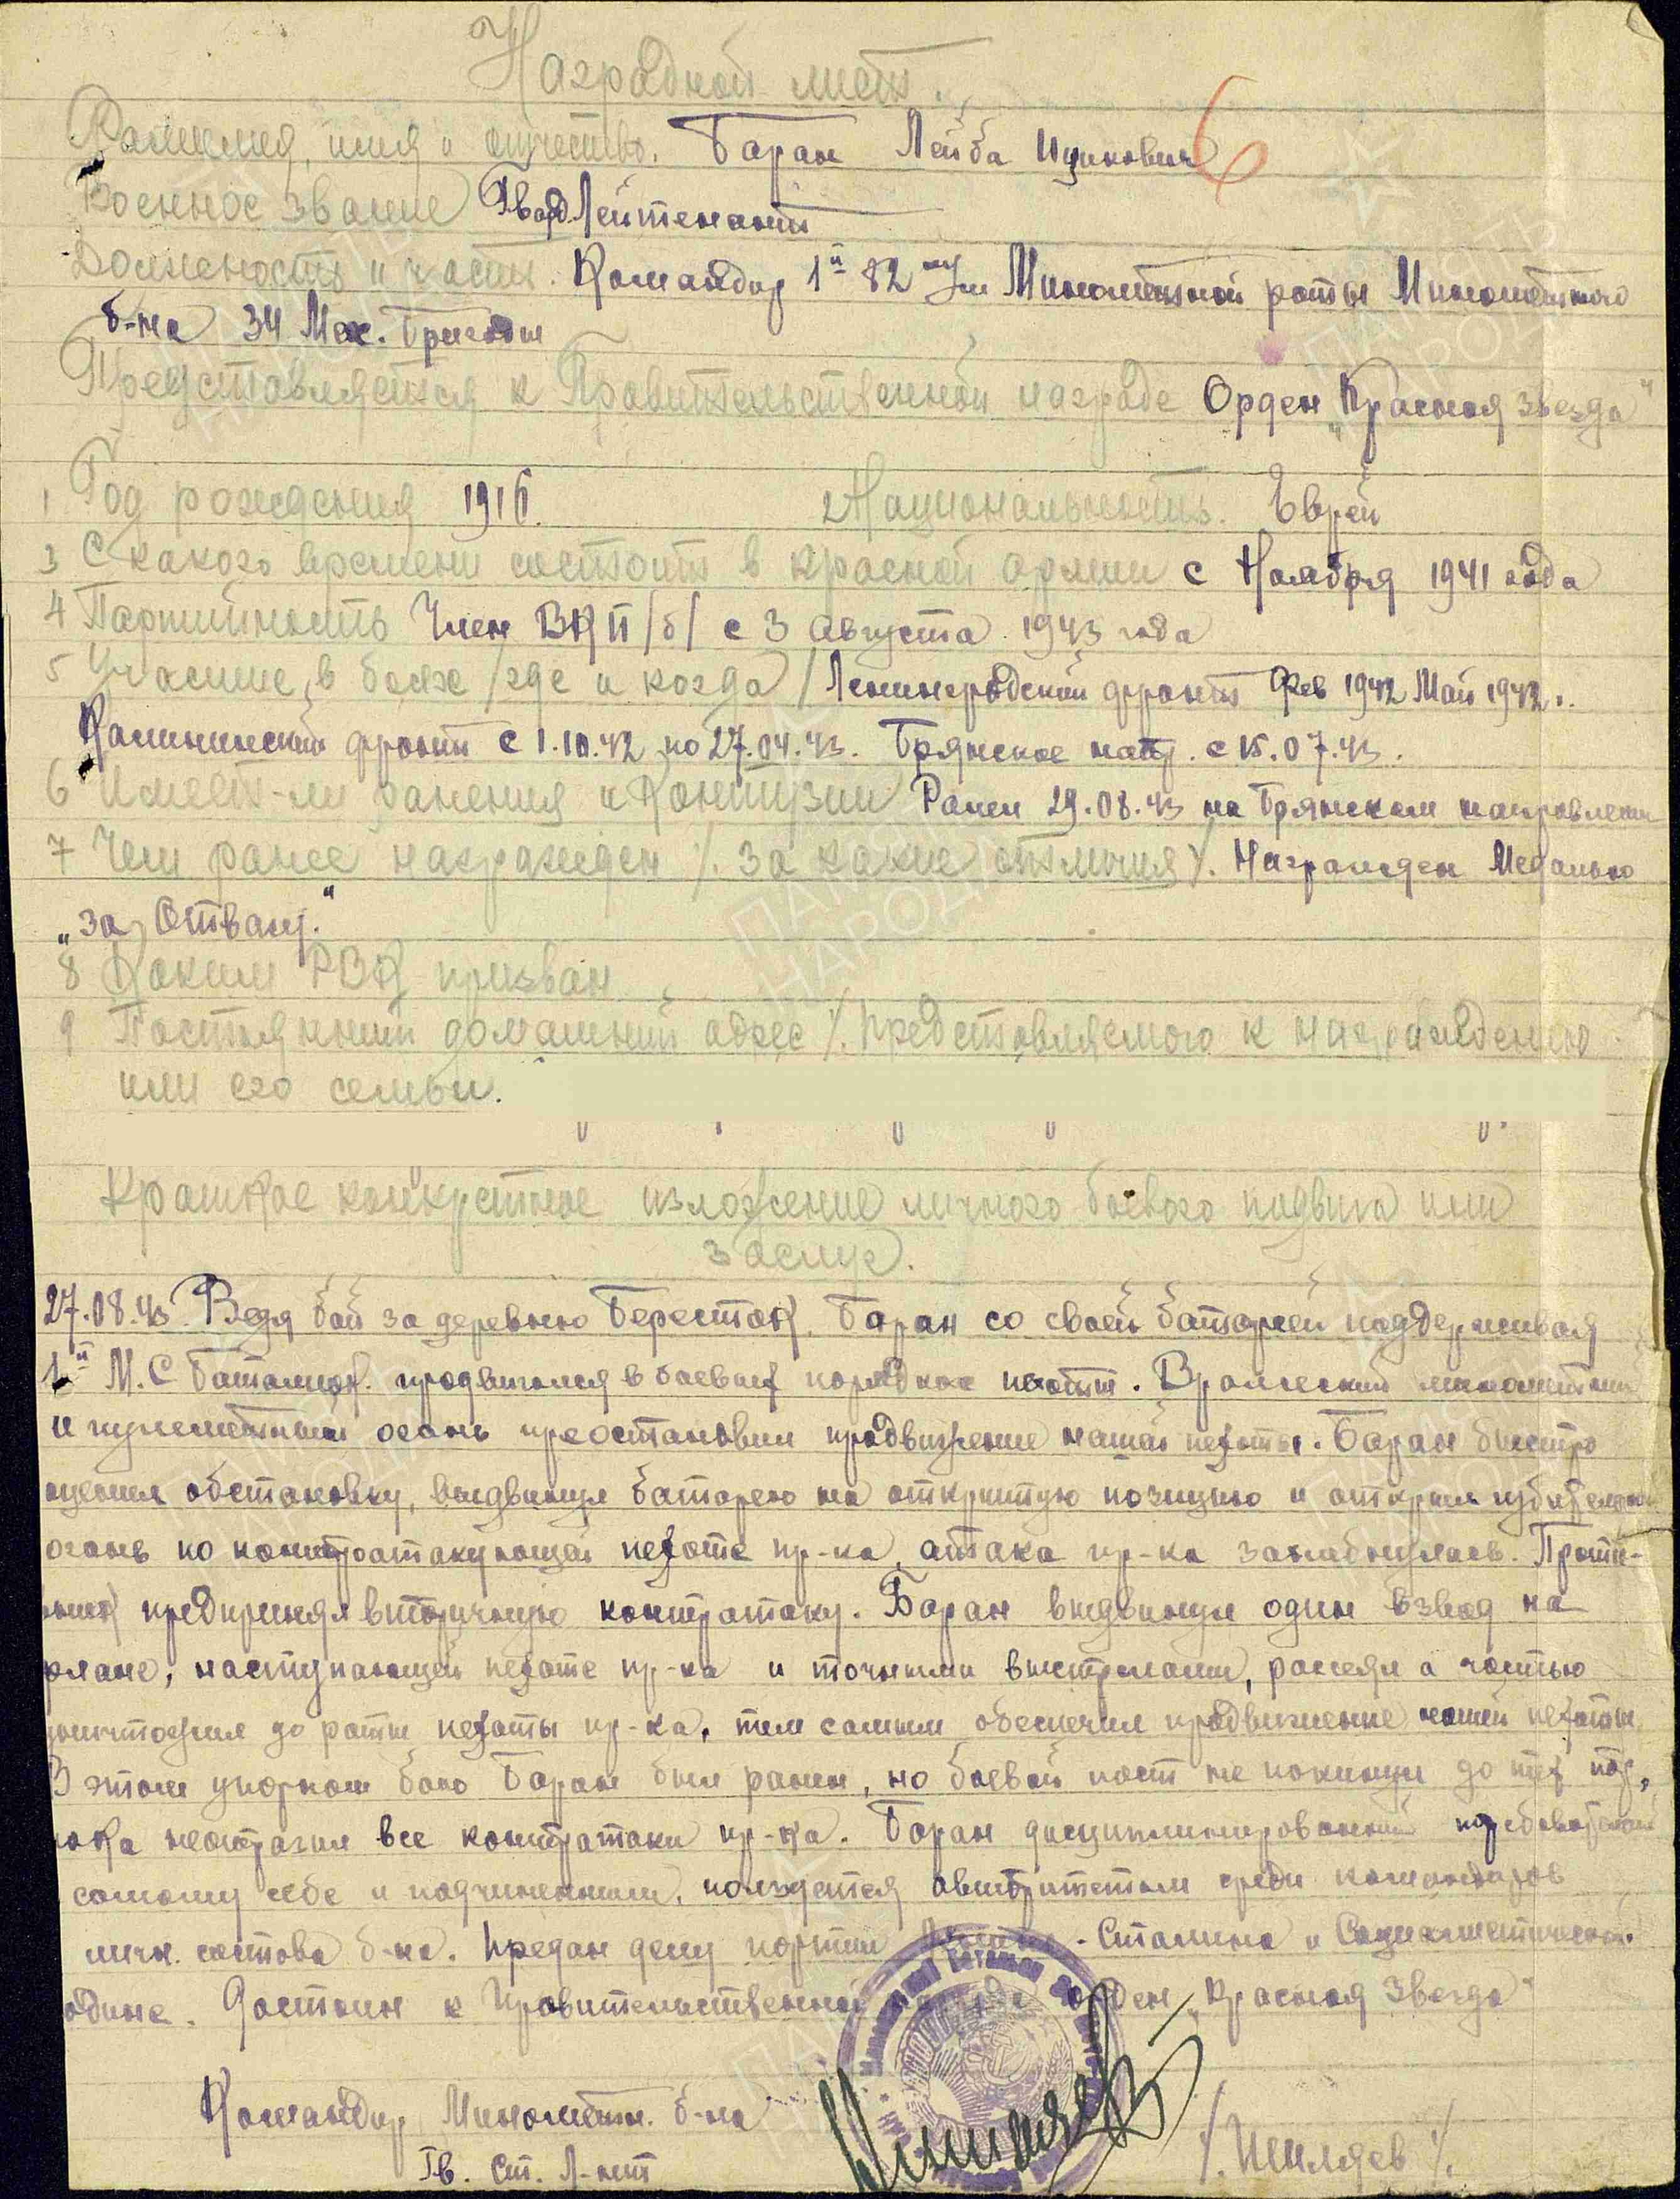 Наградной лист.
Фамилия, имя и отчество. Баран Лейба Ицикович
6
Военное звание Гвард. Лейтенант
Должность и часть. Командир 1й 82 мм Минометной роты Минометного
б-на 34 Мех. Бригады
Представляется к Правительственной награде Орден „Красная звезда"
1 Год рождения 1916. 2 Национальность. Еврей
3 С какого времени состоит в красной армии с Ноября 1941 года
4 Партийность Член ВКП/б/ с 3 августа 1943 года
5 Участие в боях /где и когда/ Ленинградский фронт Фев 1942 Май 1942г.
Калининский фронт с 1.10.42 по 27.04.43. Брянское напр. с 15.07.43.
6 Имеет-ли ранения и Контузии Ранен 29.08.43 на Брянском направлении
7 Чем ранее награжден /. за какие отличия /. Награжден Медалью
„за Отвагу."
8 Каким РВК призван
9 Постоянный домашний адрес /. представляемого к награждению
или его семьи.
Краткое конкретное изложение личного боевого подвига или
заслуг.
27.08.43. Ведя бой за деревню Бересток, Баран со своей батареей поддерживая
1й М.С Батальон. продвигался в боевых порядках пехоты. Вражеский минометный
и пулеметный огонь преостановил продвижение нашей пехоты. Баран быстро
оценил обстановку, выдвинул батарею на открытую позицию и открыл губительный
огонь по контратакующей пехоте пр-ка, атака пр-ка захлабнулась. Проти-
вник предпринял вторичную контратаку. Баран выдвинул один взвод на
фланг, наступающей пехоте пр-ка и точными выстрелами, рассеял а частью
уничтожил до роты пехоты пр-ка, тем самым обеспечил продвижение нашей пехоты.
В этом упорном бою Баран был ранен, но боевой пост не покинул до тех пор,
пока не отразил все контратаки пр-ка. Баран дисциплинированный требовательный
самому себе и подчиненным, пользуется авторитетом среди командиров
личн. состава б-на. Предан делу партии Ленина - Сталина и Социалистической
родине. Достоин к Правительственной награде орден „Красная Звезда"
Командир Минометн. б-на
Гв. Ст. Л-нт /. Шиляев /.